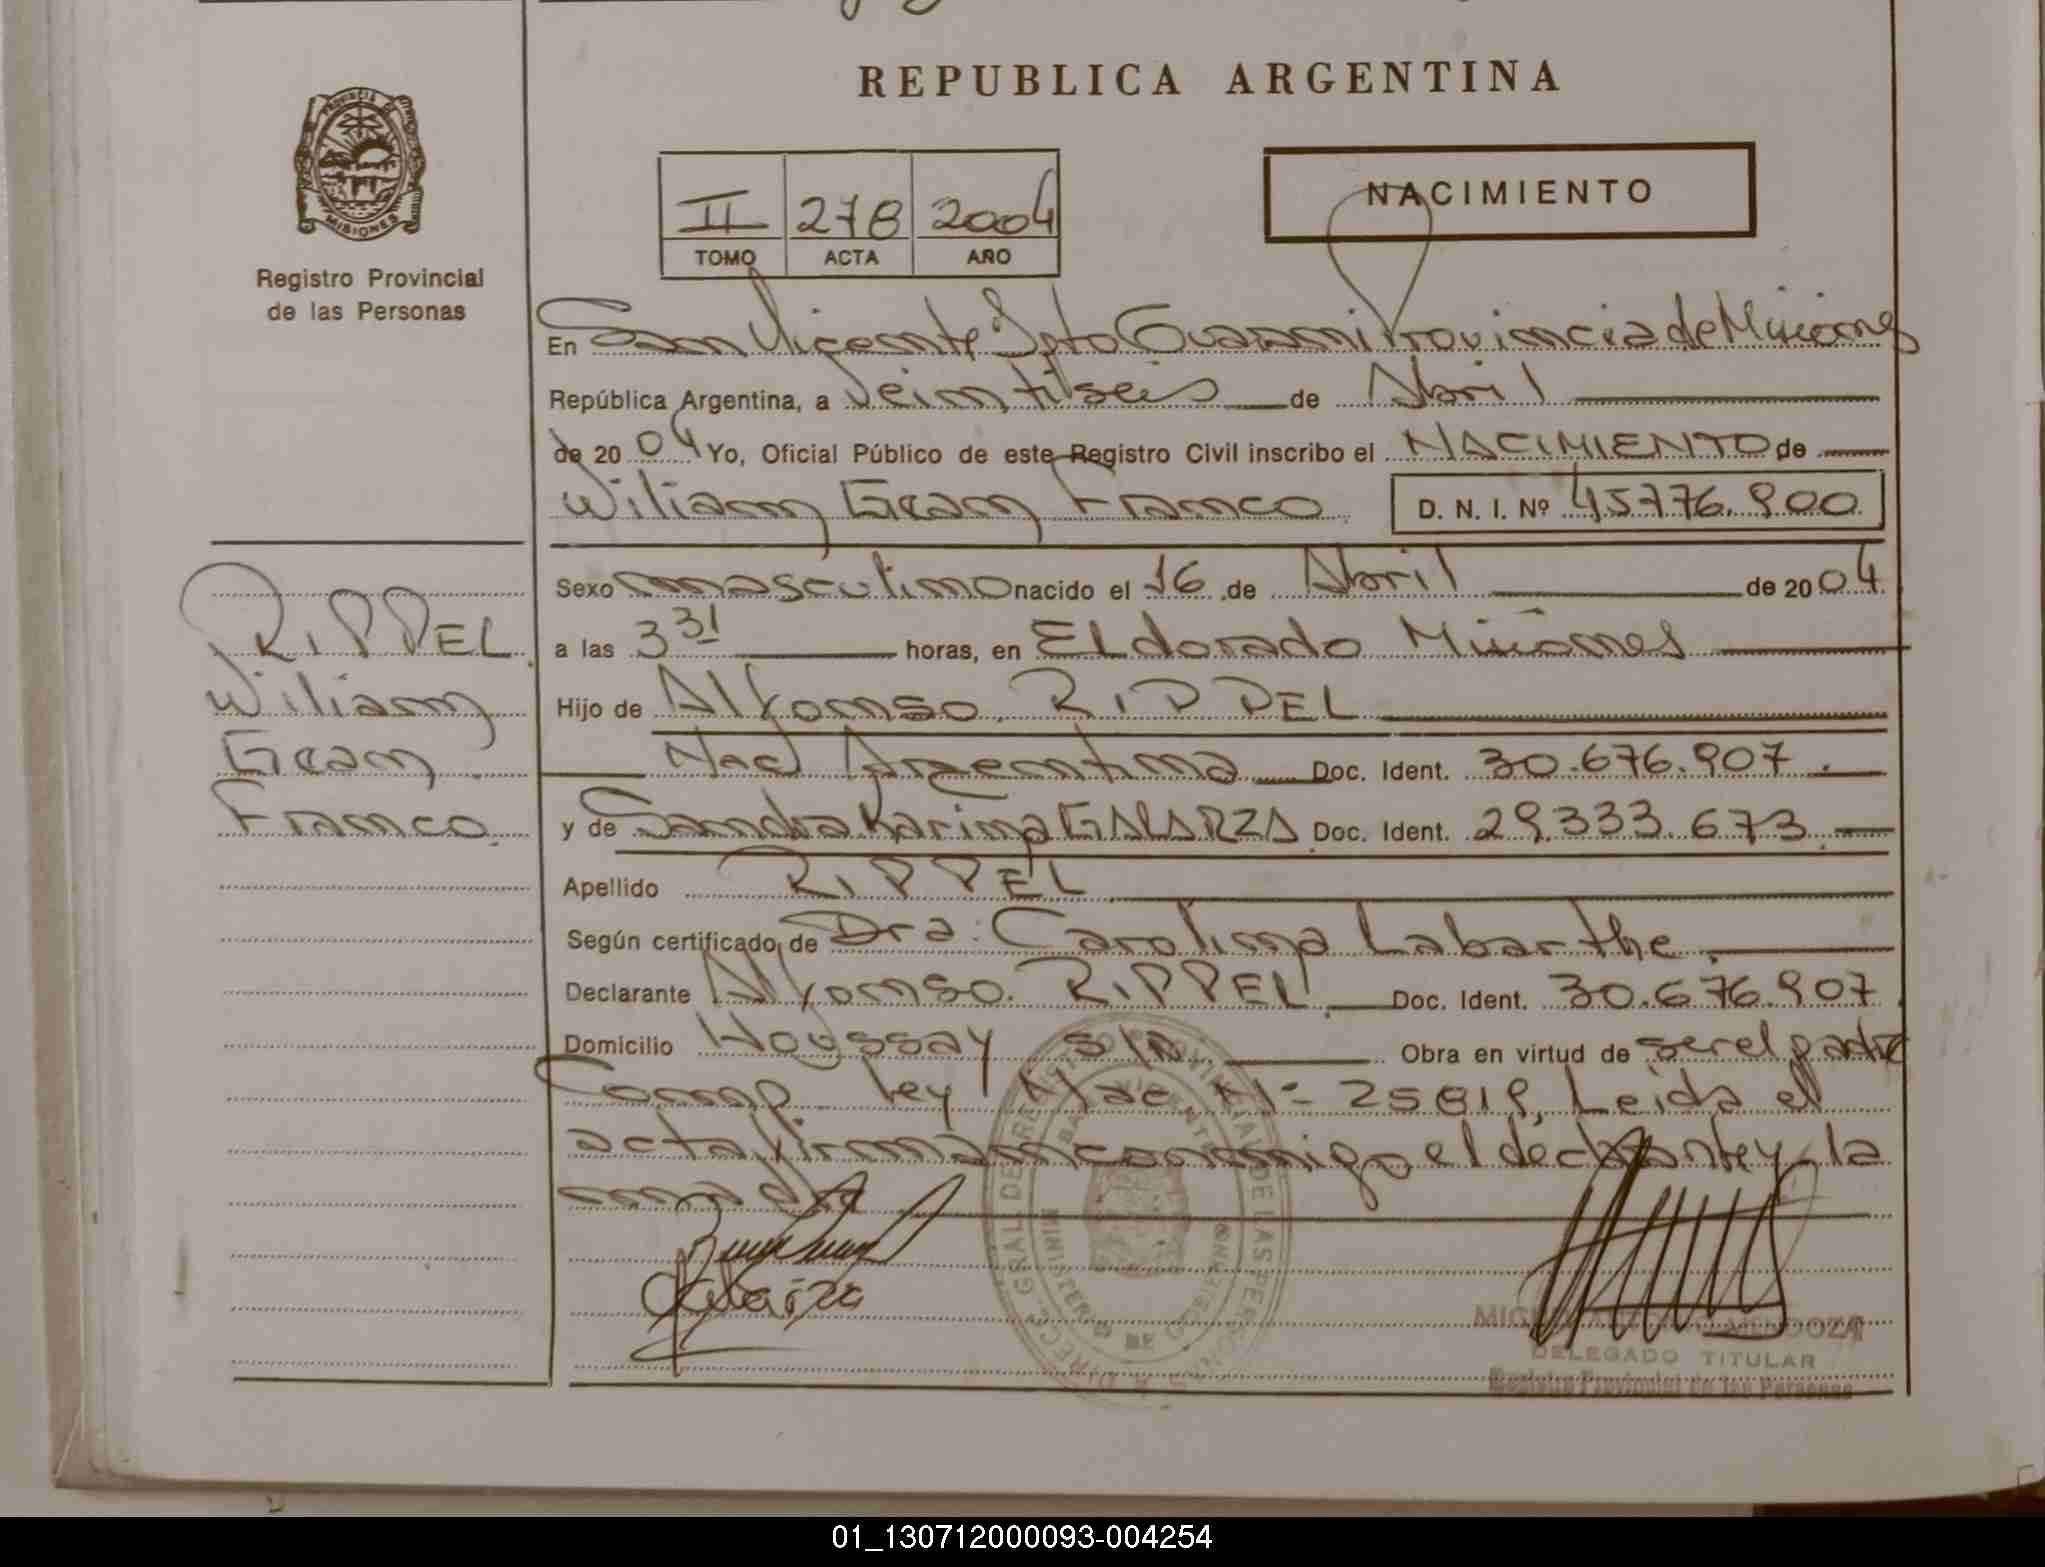 REPUBLICA ARGENTINA
PROVINCIA DE MISIONES
Registro Provincial
de las Personas
II 278 2004
TOMO ACTA AÑO
NACIMIENTO
En San Vicente Dpto Guarani Provincia de Misiones
República Argentina, a Veintiseis de Abril
de 2004 Yo, Oficial Público de este Registro Civil inscribo el NACIMIENTO de
Wiliam Gean Franco D. N. I. Nº 45776.900
Sexo masculino nacido el 16 de Abril de 2004
RIPPEL
Wiliam
Gean
Franco
a las 3 31 horas, en Eldorado Misiones
Hijo de Alfonso RIPPEL
Nac Argentina Doc. Ident. 30.676.907
y de Sandra Karina GALARZA Doc. Ident. 29.333.673
Apellido RIPPEL
Según certificado de Dra: Carolina Labarthe
Declarante Alfonso RIPPEL Doc. Ident. 30.676.907
Domicilio Houssay s/n Obra en virtud de ser el padre
Comp Ley Nac Nº 25819, Leida el
acta firman conmigo el declarante y la
madre
Galarza
MIGUEL ANTONIO MENDOZA
DELEGADO TITULAR
Registro Provincial de las Personas
01_130712000093-004254